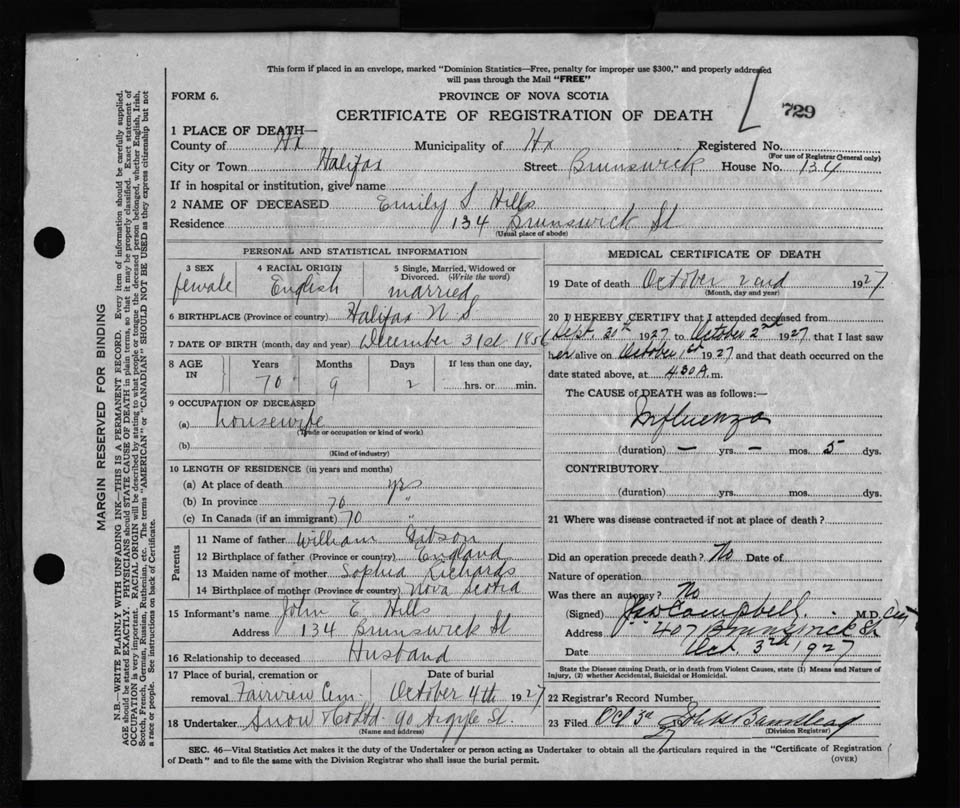 This form if placed in an envelope, marked "Dominion Statistics—Free, penalty for improper use $300," and properly addressed
will pass through the Mail "FREE"
FORM 6.
PROVINCE OF NOVA SCOTIA
729
CERTIFICATE OF REGISTRATION OF DEATH
1 PLACE OF DEATH—
County of Hx Municipality of Hx Registered No.
(For use of Registrar General only)
City or Town Halifax Street Brunswick House No. 134
If in hospital or institution, give name
2 NAME OF DECEASED Emily S Hills
Residence 134 Brunswick St
(Usual place of abode)
PERSONAL AND STATISTICAL INFORMATION
3 SEX 4 RACIAL ORIGIN 5 Single, Married, Widowed or
Divorced. (Write the word)
female English married
6 BIRTHPLACE (Province or country) Halifax N.S.
7 DATE OF BIRTH (month, day and year) December 31st 1856
8 AGE Years Months Days If less than one day,
IN 70 9 2 hrs. or min.
9 OCCUPATION OF DECEASED
(a) housewife
(Trade or occupation or kind of work)
(b)
(Kind of industry)
10 LENGTH OF RESIDENCE (in years and months)
(a) At place of death yrs
(b) In province 70 "
(c) In Canada (if an immigrant) 70 "
Parents
11 Name of father William Gibson
12 Birthplace of father (Province or country) England
13 Maiden name of mother Sophia Richards
14 Birthplace of mother (Province or country) Nova Scotia
15 Informant's name John E Hills
Address 134 Brunswick St
16 Relationship to deceased Husband
17 Place of burial, cremation or Date of burial
removal Fairview Cem. October 4th 1927
18 Undertaker Snow & Co Ltd 90 Argyle St.
(Name and address)
MEDICAL CERTIFICATE OF DEATH
19 Date of death October 2nd 1927
(Month, day and year)
20 I HEREBY CERTIFY that I attended deceased from
Sept. 31st 1927 to October 2nd 1927 that I last saw
her alive on October 1st 1927 and that death occurred on the
date stated above, at 4.30 A m.
The CAUSE of DEATH was as follows:—
Influenza
(duration) — yrs. — mos. 5 dys.
CONTRIBUTORY
(duration) yrs. mos. dys.
21 Where was disease contracted if not at place of death?
Did an operation precede death? No Date of
Nature of operation
Was there an autopsy? No
(Signed) Campbell M.D. City
Address 407 Brunswick St
Date Oct. 3rd 1927
State the Disease causing Death, or in death from Violent Causes, state (1) Means and Nature of
Injury, (2) whether Accidental, Suicidal or Homicidal.
22 Registrar's Record Number
23 Filed Oct 3rd 27
(Division Registrar)
SEC. 46—Vital Statistics Act makes it the duty of the Undertaker or person acting as Undertaker to obtain all the particulars required in the "Certificate of Registration
of Death" and to file the same with the Division Registrar who shall issue the burial permit.
(OVER)
MARGIN RESERVED FOR BINDING
N.B.—WRITE PLAINLY, WITH UNFADING INK—THIS IS A PERMANENT RECORD. Every item of information should be carefully supplied.
AGE should be stated EXACTLY. PHYSICIANS should STATE CAUSE OF DEATH in plain terms, so that it may be properly classified. Exact statement of
OCCUPATION is very important. RACIAL ORIGIN will be described by stating to what people or tongue the deceased person belonged, whether English, Irish,
Scotch, French, German, Russian, Ruthenian, etc. The terms "AMERICAN" or "CANADIAN" SHOULD NOT BE USED as they express citizenship but not
a race or people. See instructions on back of Certificate.